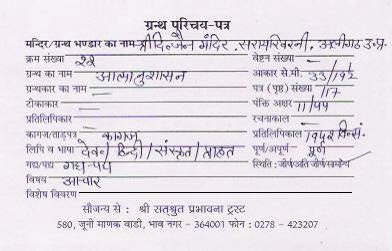 ग्रन्थ परिचय-पत्र
मन्दिर/ग्रन्थ भण्डार का नाम श्री दि. जैन मंदिर, सरायखिरनी, अलीगढ उ.प्र.
क्रम संख्या २२ वेष्टन संख्या
ग्रन्थ का नाम आत्मानुशासन आकार से.मी. 33/19½
ग्रन्थकार का नाम पत्र (पृष्ठ) संख्या 117
टीकाकार पंक्ति अक्षर 11/44
प्रतिलिपिकार रचनाकाल
कागज/ताड़पत्र कागज प्रतिलिपिकाल
लिपि व भाषा देवना हिन्दी/संस्कृत/प्राकृत पूर्ण/अपूर्ण पूर्ण
गद्य/पद्य गद्य-पद्य स्थिति : जीर्ण/अति जीर्ण/सामान्य
विषय आचार
विशेष विवरण
सौजन्य से : श्री सतश्रुत प्रभावना ट्रस्ट
580, जूनी माणक वाडी, भाव नगर - 364001 फोन : 0278 - 423207